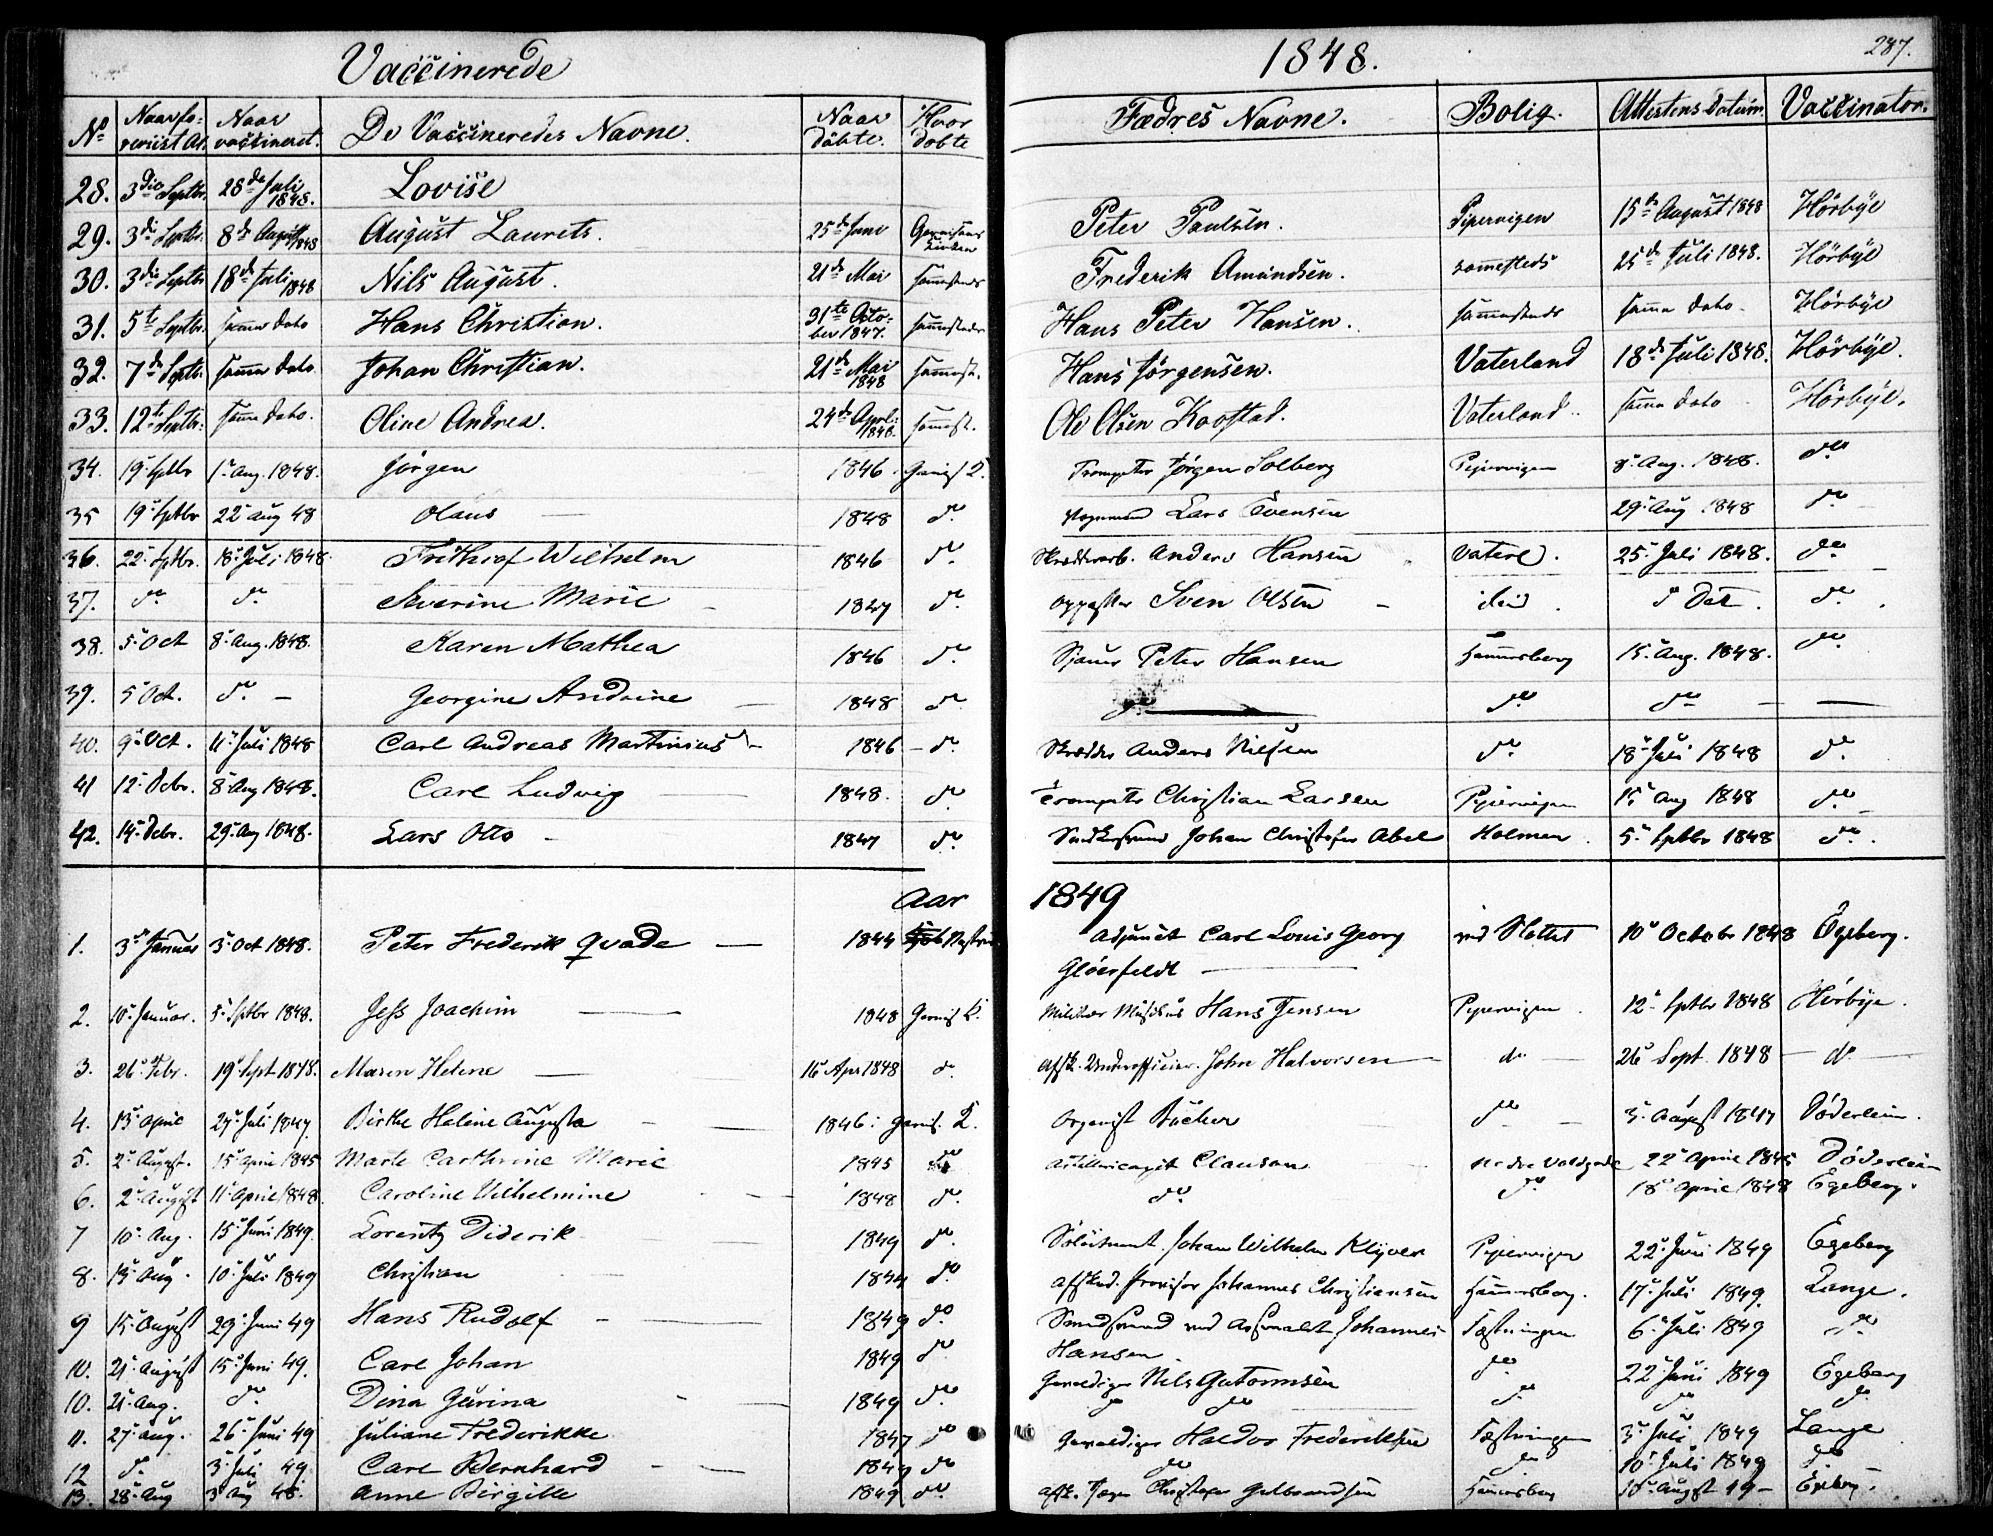 Vaccinerede 1848. 287.
No Naar vaccineret. De Vaccineredes Navne. Naar Döbte. Hvor Döbte Fædres Navne. Bolig. Attestens Datum. Vaccinator.
28. 3die Septbr. 28de Juli 1848. Lovise
29. 3die Septbr. 8de August 1848 August Laurets. 25de Juni Garnisons Kirken Peter Paulsen. Pipervigen 15de August 1848 Hörbÿe
30. 3die Septbr 18de Juli 1848 Nils August. 21de Mai sammesteds Frederik Amundsen. sammesteds 25de Juli 1848. Hörbÿe
31. 5te Septbr. samme Dato Hans Christian. 31te October 1847. sammesteds Hans Peter Hansen. sammesteds samme Dato. Hörbÿe
32. 7de Septbr. samme Dato Johan Christian. 21de Mai 1848 sammest. Hans Jörgensen. Vaterland 18de Juli 1848. Hörbÿe.
33. 12te Septbr. samme Dato. Oline Andrea. 24de April 1848. sammest. Ole Olsen Vaterland. samme Dato Hörbÿe.
34. 19. Sptbr 1. Aug. 1848. Jörgen 1846 Garnis K. Trompeter Jörgen Solberg Pipervigen 8. Aug. 1848. do
35 19. Sptbr 22 Aug 48 Olaus 1848 do. Lars Evensen 29. Aug 1848 do
36. 22. Sptbr. 18. Juli 1848. Frithiof Wilhelm 1846 do. Skredderarb. Anders Hansen Vaterl. 25. Juli 1848. do
37. do do Severine Marie 1847 do. Oppasser Sven Olsen ibid. do Dat. do.
38. 5. Oct 8. Aug. 1848. Karen Mathea 1846 do. Sjauer Peter Hansen Hammersberg 15. Aug. 1848. do
39. 5 Oct. do Georgine Andrine 1848 do. do do do
40. 9. Oct. 11. Juli 1848 Carl Andreas Martinius 1846 do. Skrædder Anders Nielsen do. 18. Juli 1848 do.
41 12. Debr. 8. Aug 1848. Carl Ludvig 1848. do Trompeter Christian Larsen Pipervigen 15 Aug 1848 do
42. 14. Debr. 29. Aug 1848. Lars Otto 1847 do. Johan Christofer Abel Holmen 5. Sptbr 1848 do.
Aar 1849
1. 3. Januar 3. Oct 1848. Peter Frederik Qvade 1844 Adjunct Carl Louis Georg ved Slottet 10. Octobr 1848 Egeberg.
Glöerfeldt
2. 10. Januar. 5. Sptbr 1848. Jess Joachim 1848 Garnis K. Militær Musikus Hans Jensen Pipervigen 12. Sptbr 1848 Hörbÿe.
3. 26. Febr. 19. Sept 1848. Maren Helene 16 Apr 1848 do. Afsk. Underofficier John Halvorsen do 26. Sept. 1848 do
4. 13. April 27. Juli 1847. Birthe Heline Augusta 1846. Garnis. K. Organist Bücher do 3. August 1847 Döderlein.
5. 2. August. 15. April 1845 Marte Cathrine Marie 1845 do Clauson nedre Voldgade 22. April 1845 Döderlein
6. 2. August 11. April 1848. Caroline Wilhelmine 1848 do. do do 18. April 1848 Egeberg.
7 10. Aug. 15. Juni 1849. Lorentz Diderik 1849 do. Johan Wilhelm Klÿver Pipervigen 22. Juni 1849 Egeberg
8. 13. Aug. 10. Juli 1849 Christian 1844 do. Afsked. Provisor Johannes Christiansen Hammersborg. 17. Juli 1849. Lange.
9 15. August 29. Juni 49 Hans Rudolf 1849 do. ved Arsenalet Johannes Fæstningen 6. Juli 1849 do
Hansen
10. 21. August 15. Juni 49. Carl Johan 1849 do. Gevaldiger Nils Gutormsen do 22 Juni 1849 Egeberg
10. 21. Aug. do Dina Gurina 1849 do. do do do do do
11. 27. Aug. 26. Juni 49 Juliane Frederikke 1847 do Gevaldiger Haldor Frederiksen Fæstningen 3. Juli 1849 Lange
12 do 3. Juli 49 Carl Bernhard 1849 do do do 10. Juli 1849 do
13. 28. Aug 3 Aug 48. Anne Birgitte 1849 do. Afsk. Christofer Gulbrandsen Hammersborg 10. August 49 Egeberg.